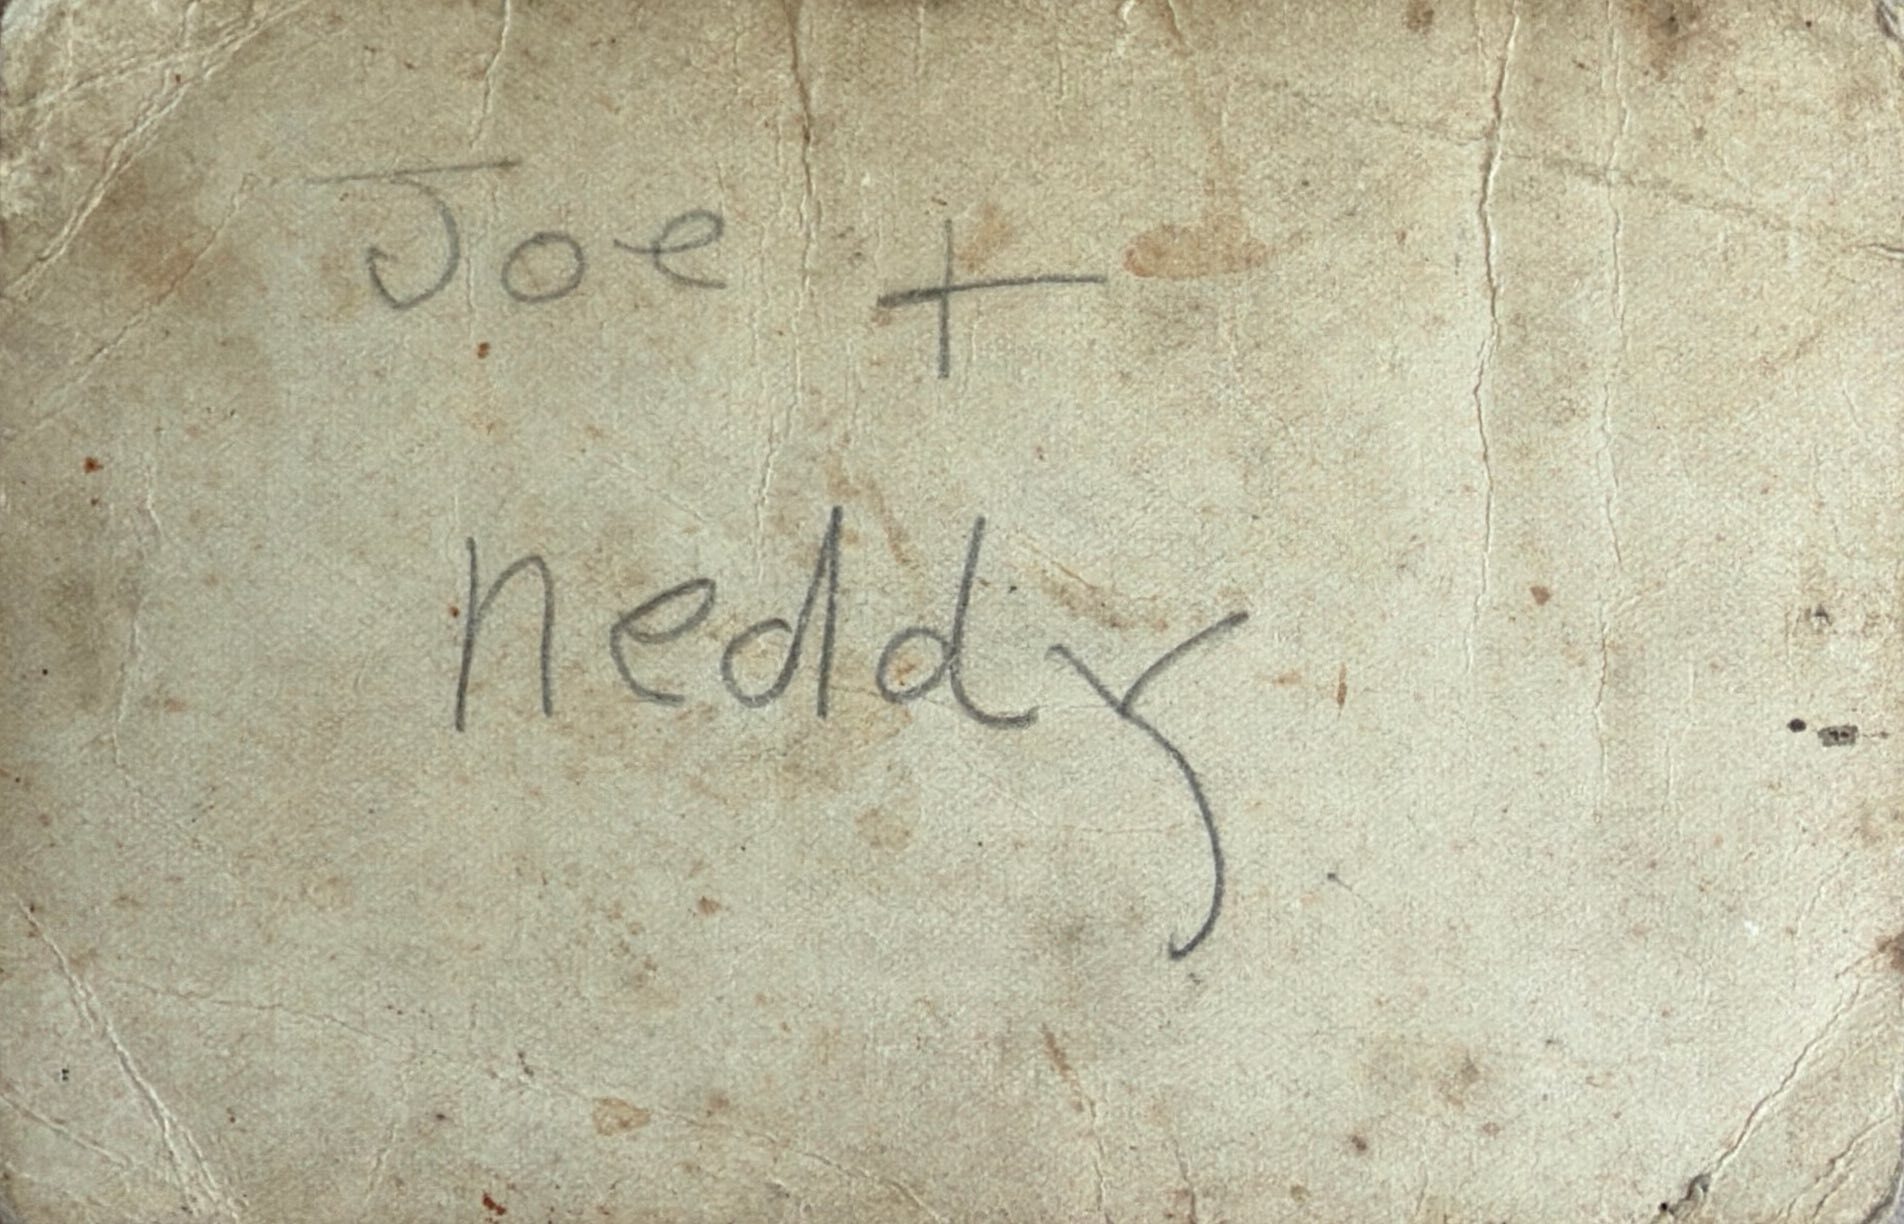 Joe +
neddy